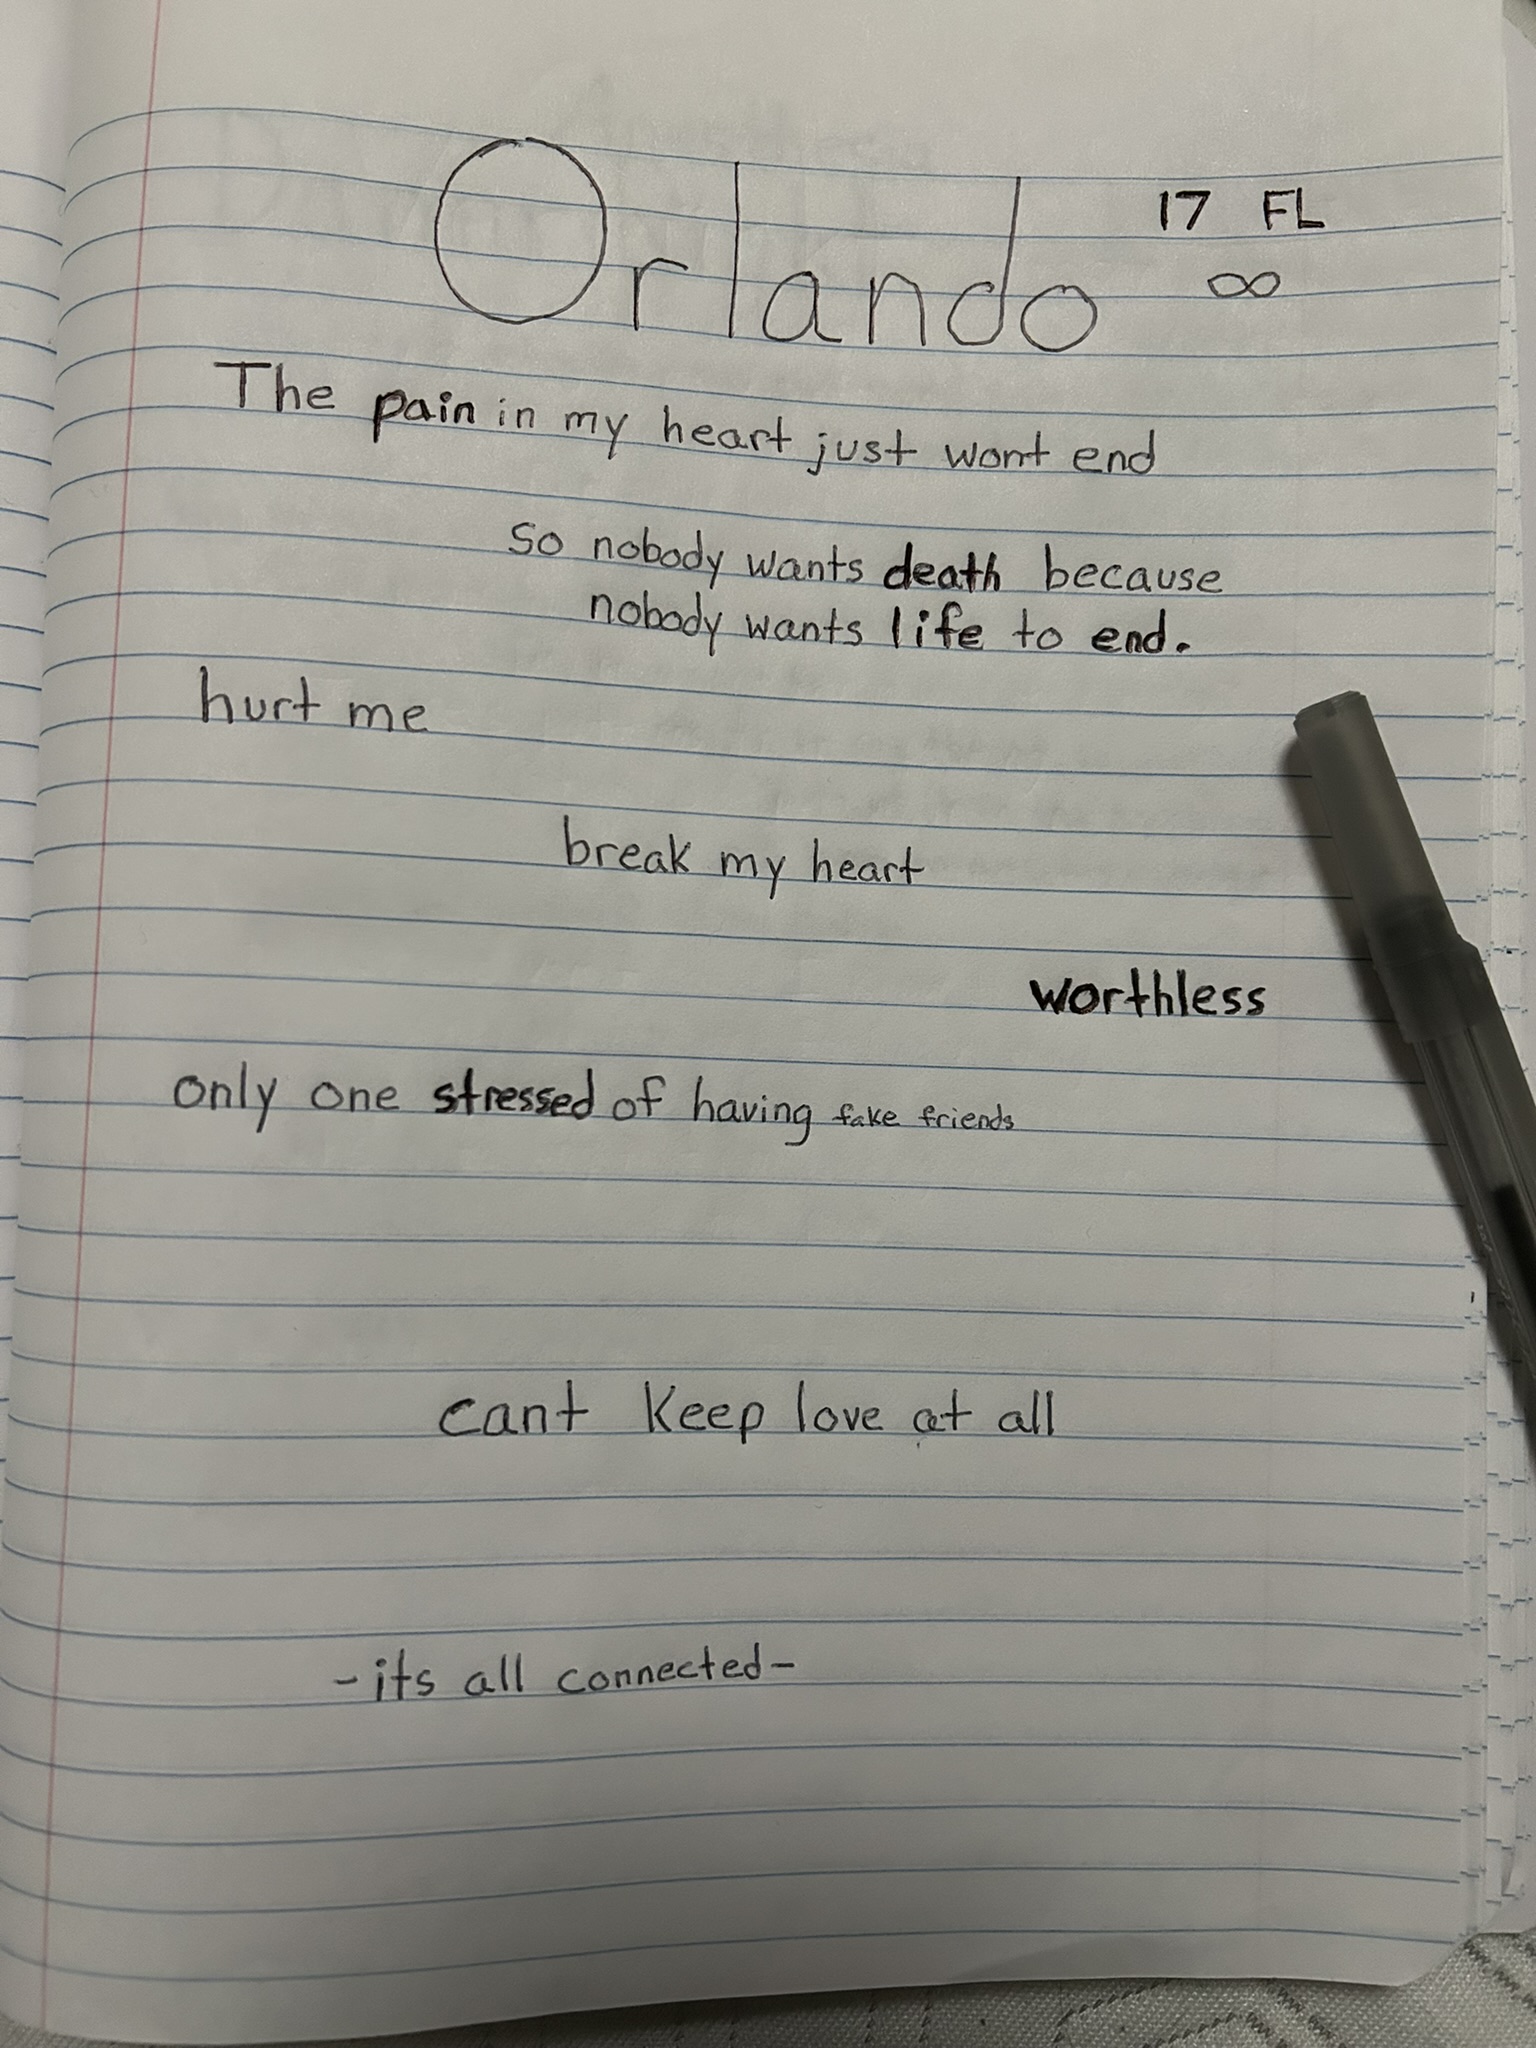 Orlando 17 FL
∞
The pain in my heart just wont end
So nobody wants death because
nobody wants life to end.
hurt me
break my heart
worthless
only one stressed of having fake friends
cant keep love at all
-its all connected-